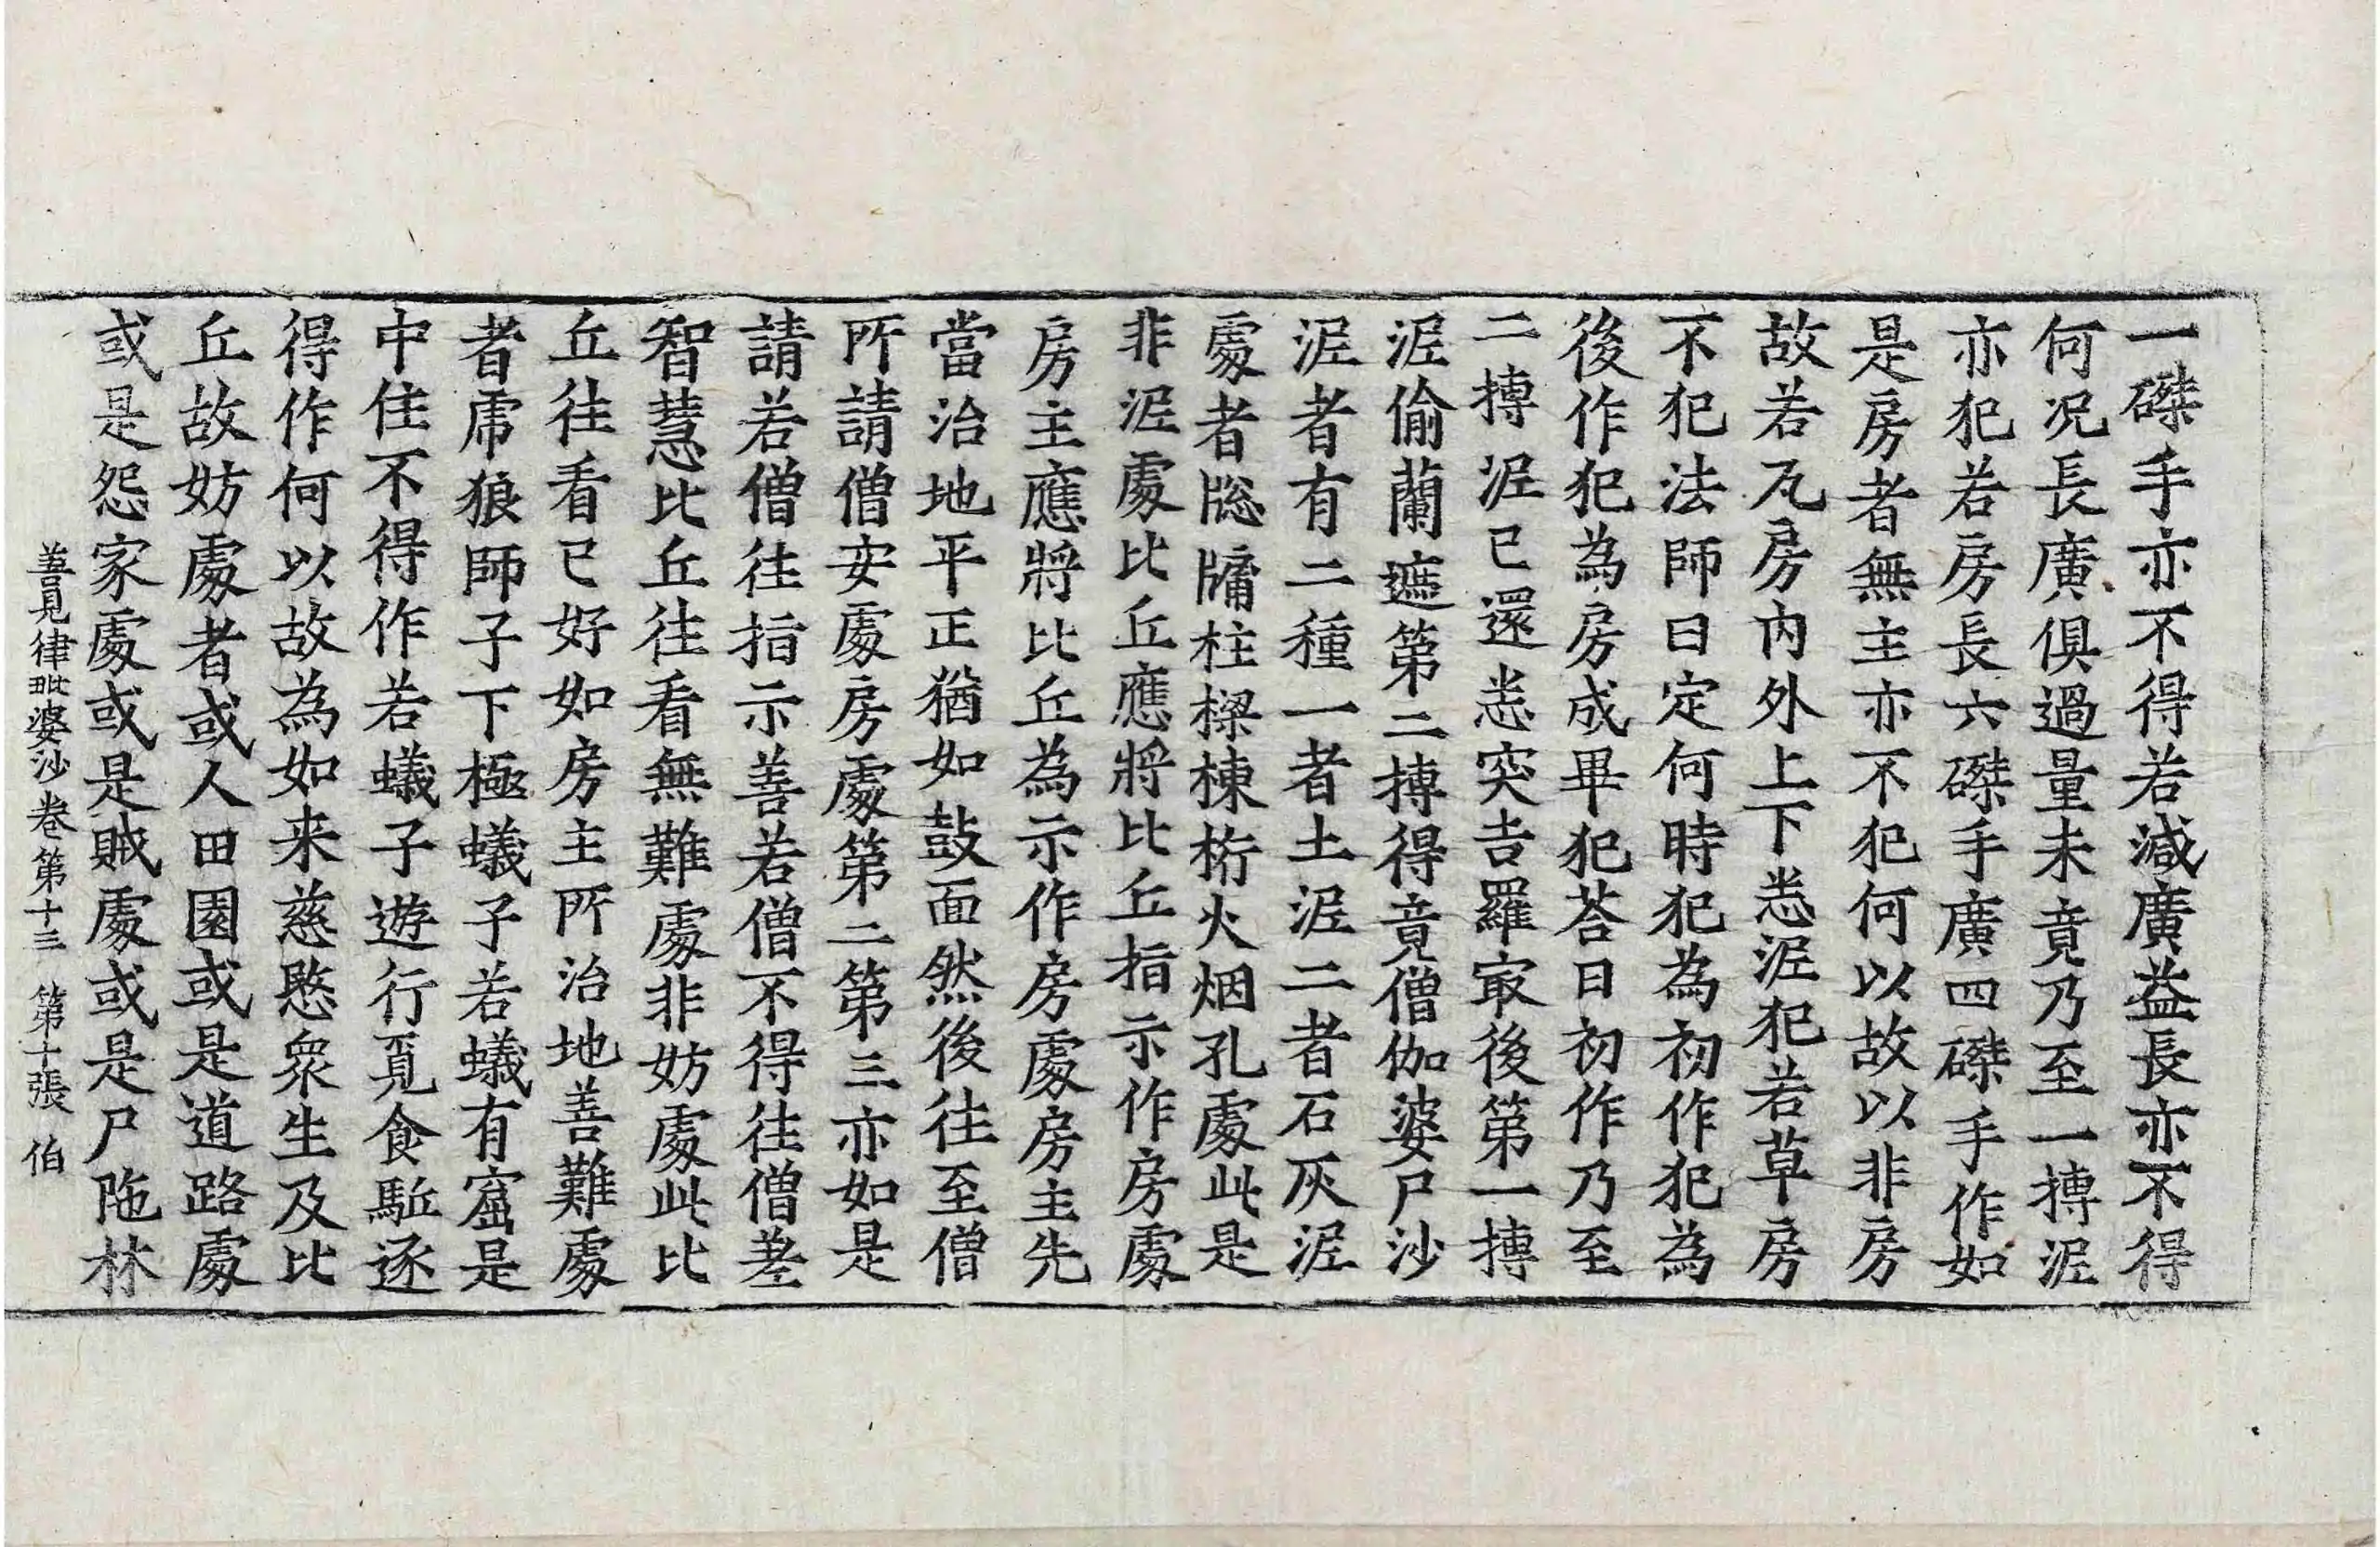 一磔手亦不得若減廣益長亦不得
何況長廣俱過量未竟乃至一摶泥
亦犯若房長六磔手廣四磔手作如
是房者無主亦不犯何以故以非房
故若瓦房內外上下悉泥犯若草房
不犯法師曰定何時犯為初作犯為
後作犯為房成畢犯荅曰初作乃至
二摶泥已還悉突吉羅㝡後第一摶
泥偷蘭遮第二摶得竟僧伽婆尸沙
泥者有二種一者土泥二者石灰泥
處者牎牖柱樑棟桁火烟孔處此是
非泥處比丘應將比丘指示作房處
房主應將比丘為示作房處房主先
當治地平正猶如鼓面然後往至僧
所請僧安處房處第二第三亦如是
請若僧往指示善若僧不得往僧差
智慧比丘往看無難處非妨處此比
丘往看已好如房主所治地善難處
者虎狼師子下極蟻子若蟻有窟是
中住不得作若蟻子遊行覓食駈逐
得作何以故為如来慈愍眾生及比
丘故妨處者或人田園或是道路處
或是怨家處或是賊處或是尸陁林
善見律毗婆沙卷第十三 第十張 伯